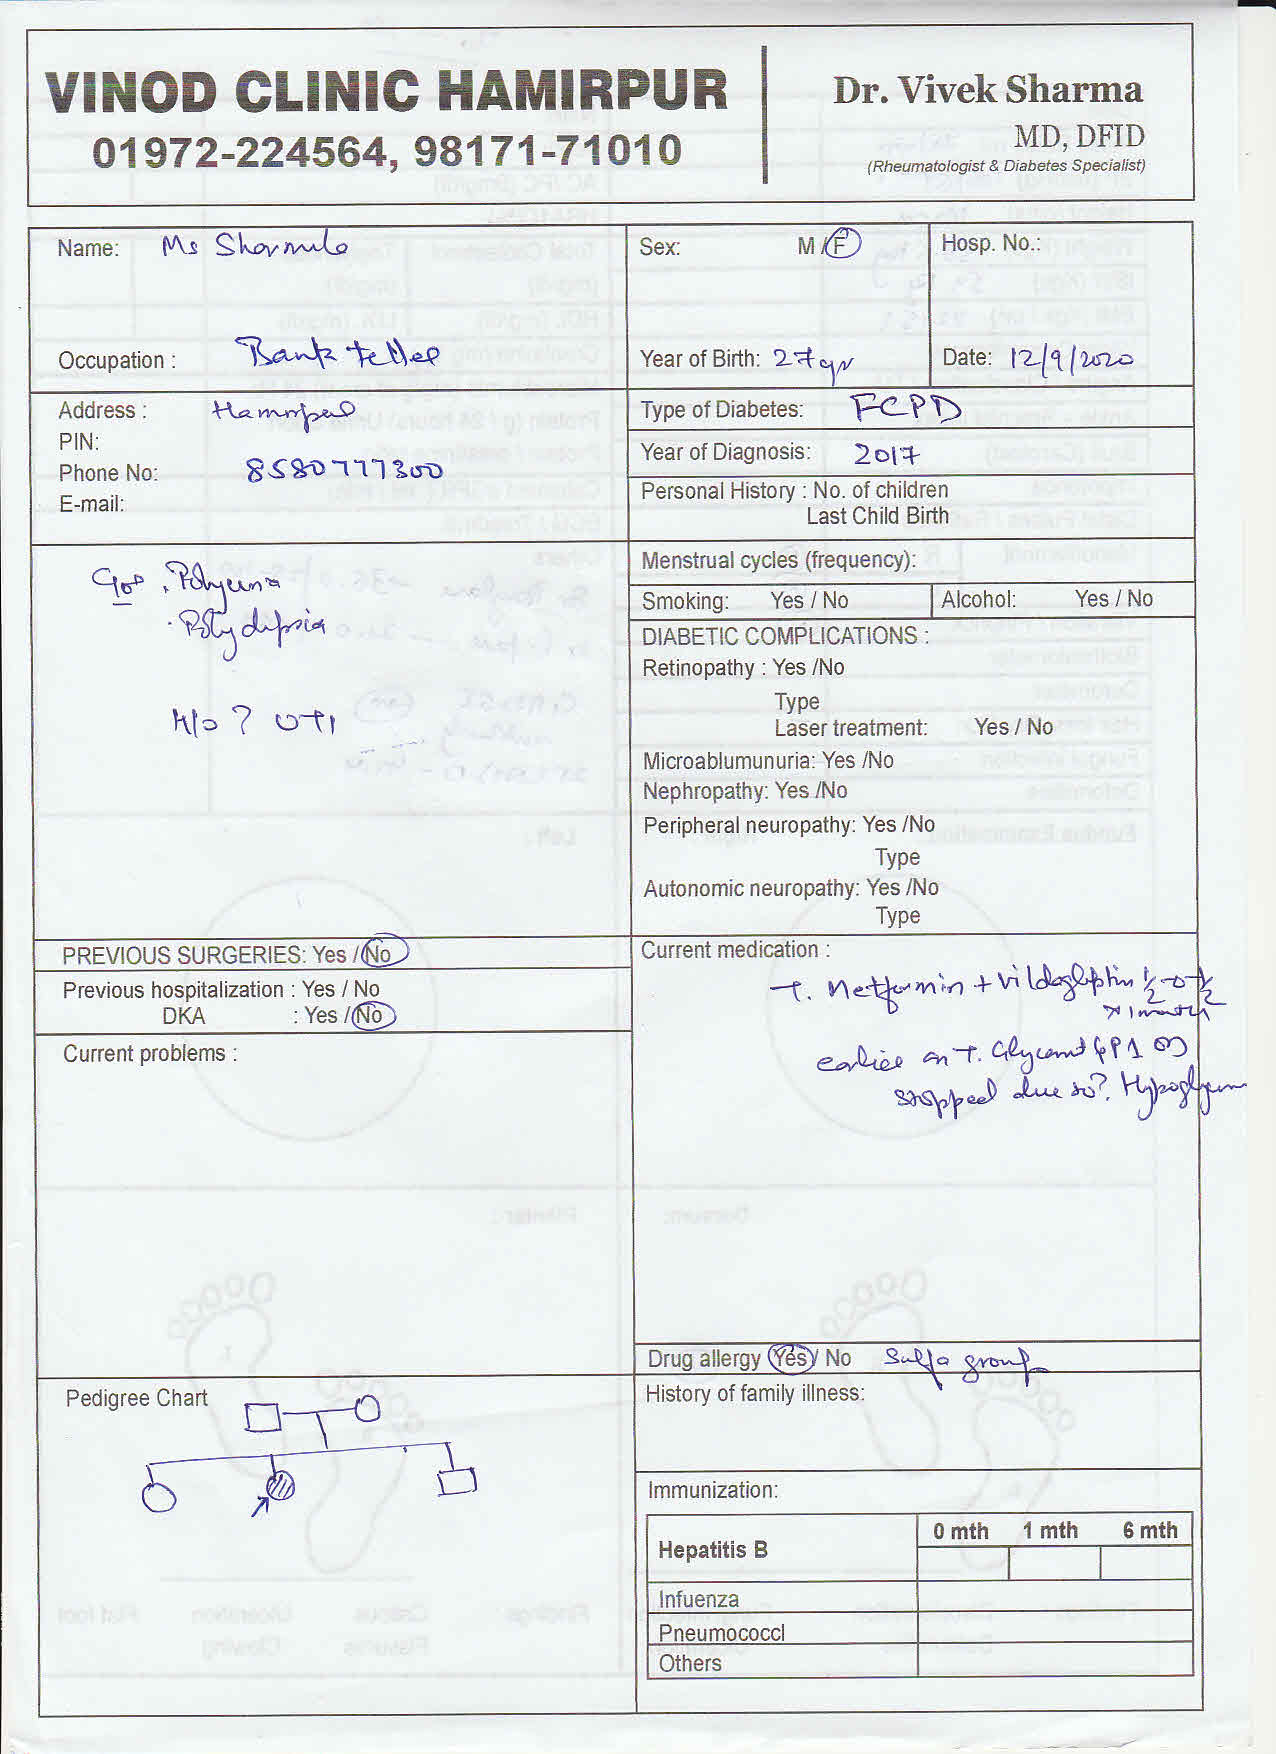 VINOD CLINIC HAMIRPUR
01972-224564, 98171-71010
Dr. Vivek Sharma
MD, DFID
(Rheumatologist & Diabetes Specialist)
Name: Ms Sharmila
Sex: M / F
Hosp. No.:
Occupation : Bank teller
Year of Birth: 27 yr
Date: 12/9/2020
Address : Hamirpur
PIN:
Phone No: 8580777300
E-mail:
Type of Diabetes: FCPD
Year of Diagnosis: 2017
Personal History : No. of children
Last Child Birth
Polyuria
Polydipsia
H/o ? UTI
Menstrual cycles (frequency):
Smoking: Yes / No Alcohol: Yes / No
DIABETIC COMPLICATIONS :
Retinopathy : Yes /No
Type
Laser treatment: Yes / No
Microablumunuria: Yes /No
Nephropathy: Yes /No
Peripheral neuropathy: Yes /No
Type
Autonomic neuropathy: Yes /No
Type
PREVIOUS SURGERIES: Yes / No
Previous hospitalization : Yes / No
DKA : Yes / No
Current problems :
Current medication :
T. Metformin + Vildagliptin ½-0-½
x 1 month
earlier on T. Glycomet GP1 OD
stopped due to ? Hypoglycem
Drug allergy Yes / No Sulfa group
History of family illness:
Pedigree Chart
Immunization:
Hepatitis B 0 mth 1 mth 6 mth
Infuenza
Pneumococcl
Others